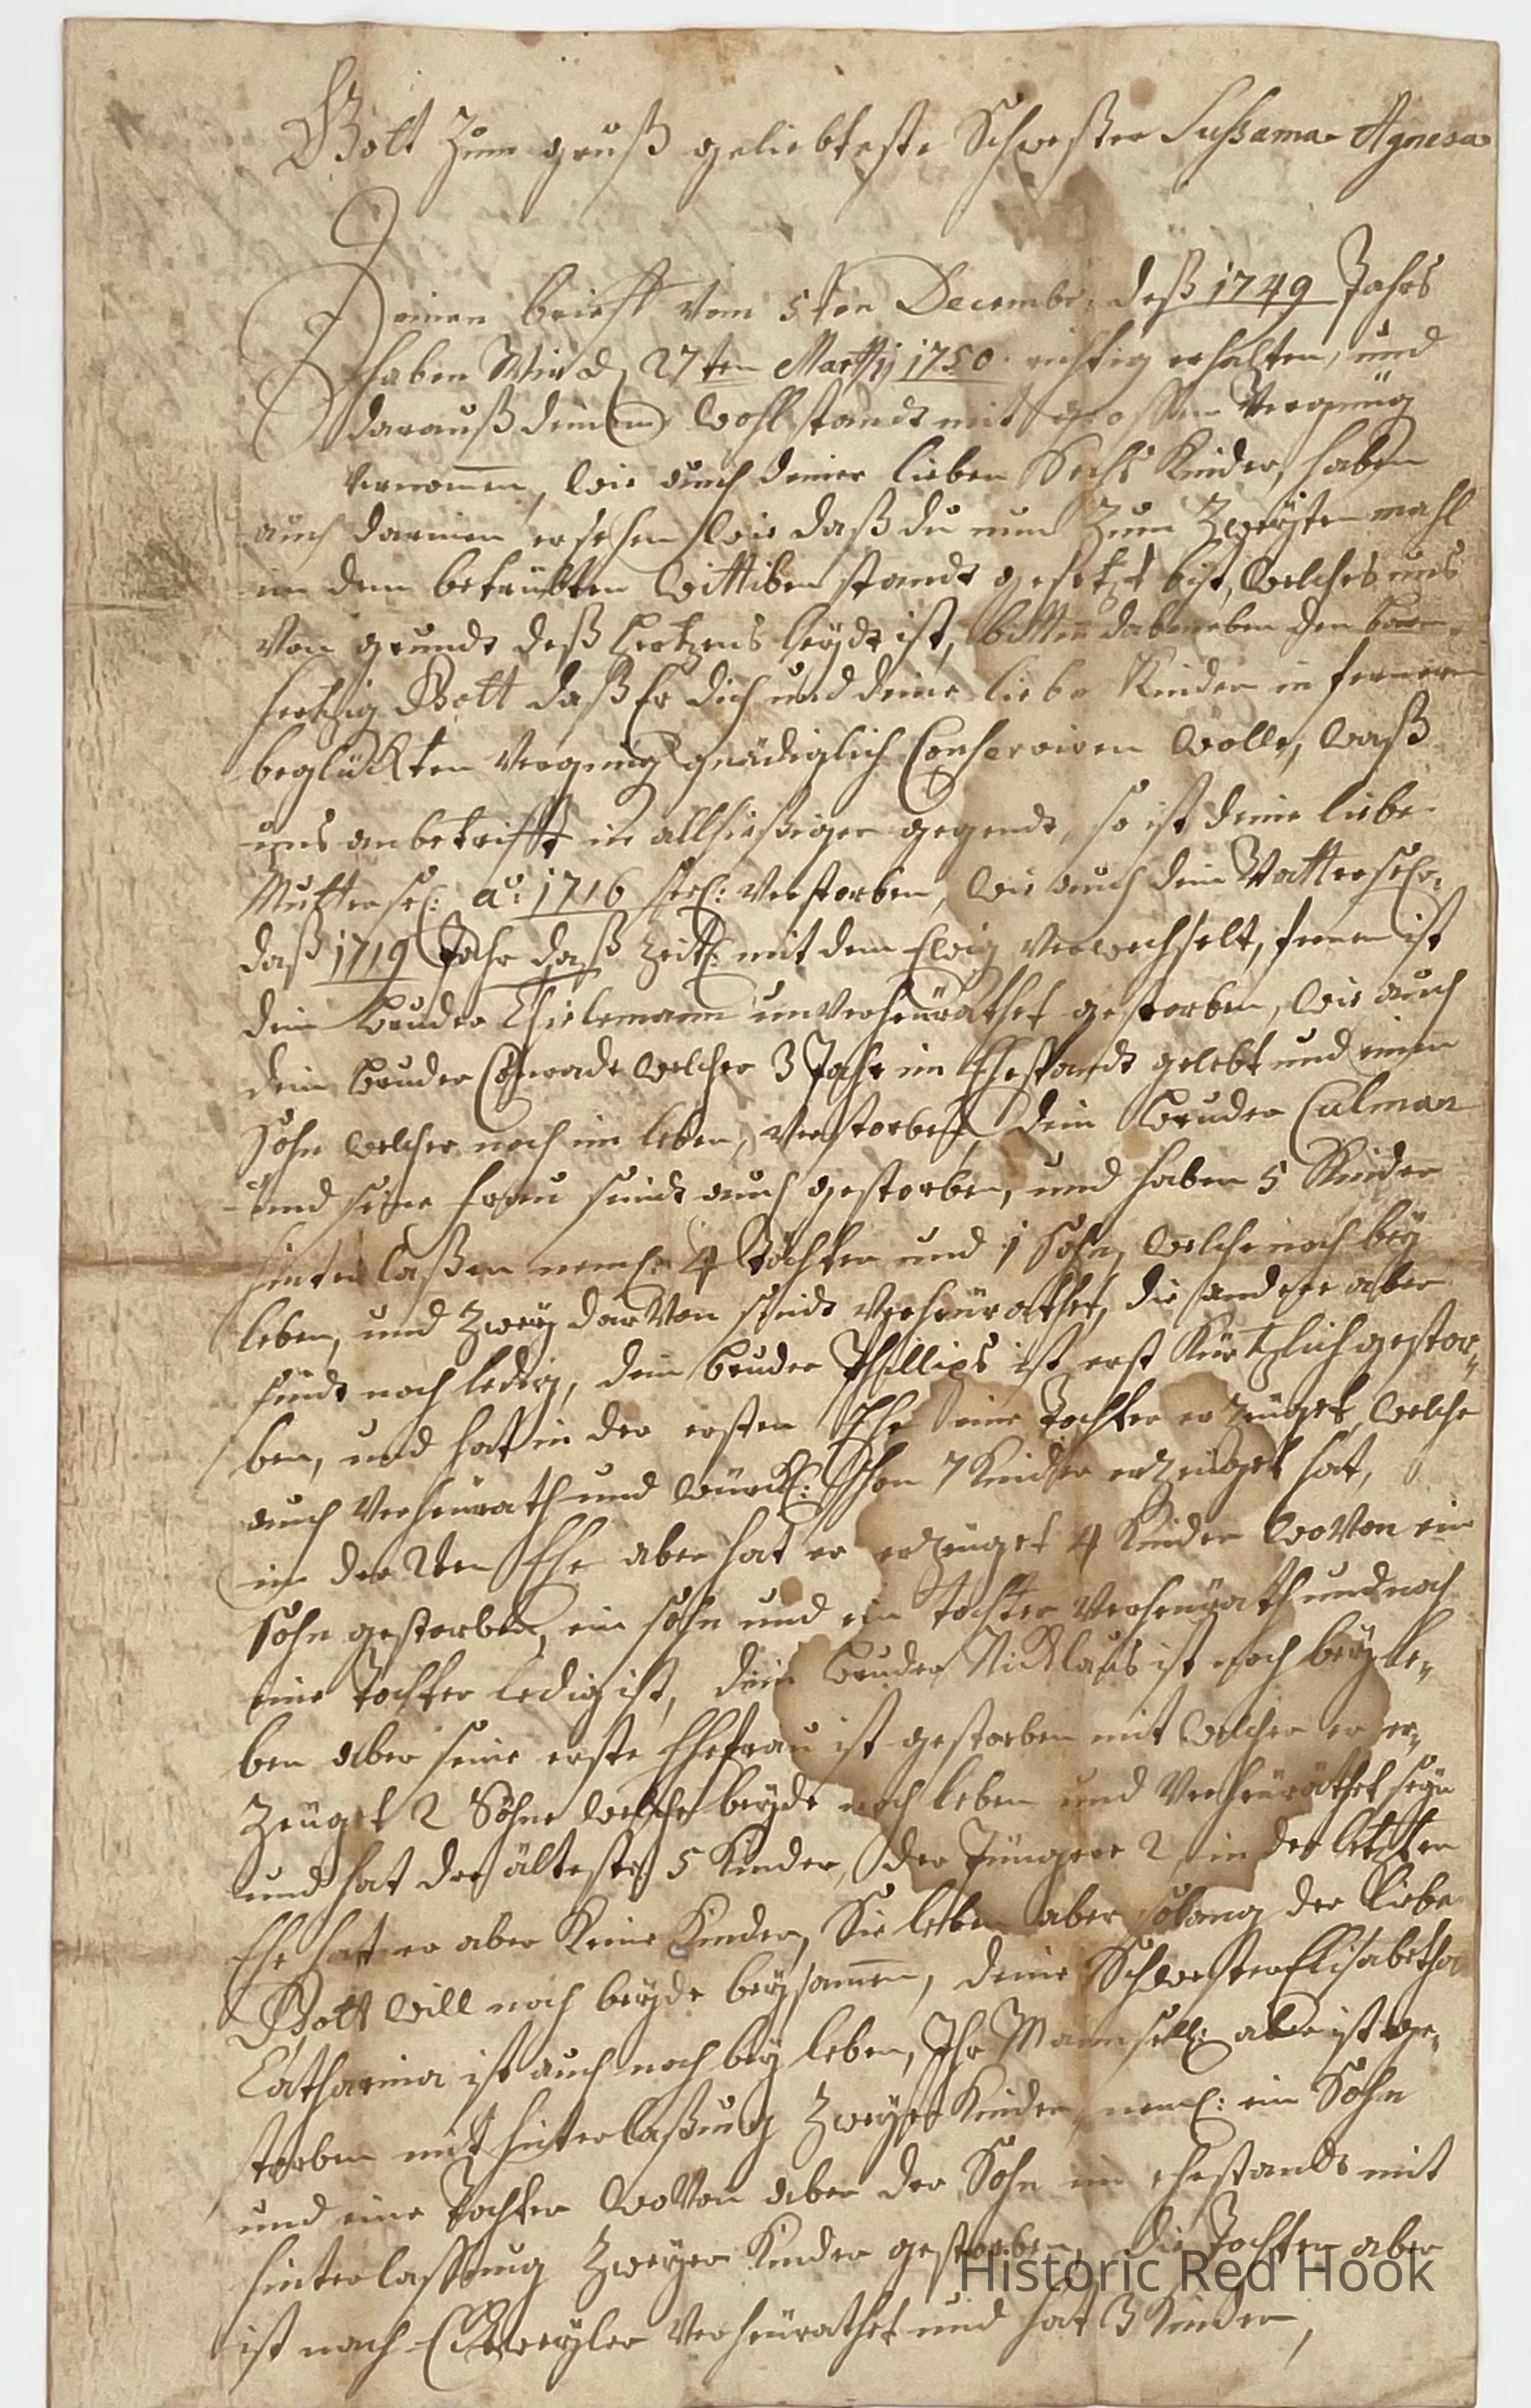 Gott Zum gruß geliebteste Schwester Sußama Agnesa
Deinen brieff Vom 5ten December deß 1749 Jahrs
haben Wir d 27ten Martij 1750 richtig erhalten, und
darauß deinen Wohlstandt mit grossen Vergnüg
vernom̄en, wie auch deiner lieben Sechs Kinder, haben
auch darinnen ersehen wie daß du nun Zum Zweÿten mahl
in dem betrübten Wittiben standt gesetzt bist, welches uns
Von grundt deß Hertzens leÿdt ist, bitten daberneben den barm-
hertzig Gott daß Er dich und deine liebe Kinder in fernern
beglückten Vergnüg gnädiglich Conserviren wolle, waß
uns anbetrifft in allhießiger gegendt, so ist deine liebe
Mutter sel: ao: 1716 seel: Verstorben, wie auch dein Vatter seel:
daß 1719 Jahr daß Zeitl: mit dem Ewig Verwechselt, ferner ist
dein bruder Thielemann unverheürathet gestorben, wie auch
dein bruder Conradt welcher 3 Jahr im Ehestandt gelebt und einen
Sohn welcher noch im leben, verstorben, dein bruder Culman
und seine frau sindt auch gestorben, und haben 5 Kinder
hinterlaßen neml: 4 Töchter und 1 Sohn, welche noch beÿ
leben, und Zweÿ darvon sindt Verheürathet, die andere aber
sindt noch ledig, dein bruder Phillips ist erst Kürtzlich gestor-
ben, und hat in der ersten Ehe eine Tochter erzeüget, welche
auch Verheürath und würckl: schon 7 Kinder erzeüget hat,
in der 2ten Ehe aber hat er erzeüget 4 Kinder wovon ein
Sohn gestorben, ein sohn und ein tochter Verheürath und noch
eine Tochter ledig ist, dein bruder Nicklaus ist noch beÿ le-
ben aber seine erste Ehefrau ist gestorben mit welcher er er-
Zeüget 2 Söhne welche beÿde noch leben und Verheüräthet seÿn
und hat der älteste 5 Kinder, der Jüngere 2, in der letzten
Ehe hat er aber Keine Kinder, Sie leben aber solang der liebe
Gott will noch beÿde beÿsam̄en, deine Schwester Elisabetha
Catharina ist auch noch beÿ leben, Ihr Mann seel: aber ist ge-
storben mit hinterlaßung Zweÿer Kinder, neml: ein Sohn
und eine Tochter wovon aber der Sohn im ehestandt mit
hinterlassung Zweÿer Kinder gestorben, die Tochter aber
ist nach Eckweÿler Verheürathet und hat 3 Kinder,
Historic Red Hook